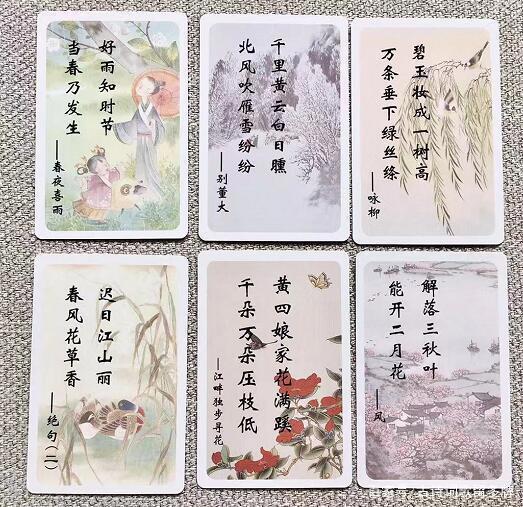 好雨知时节
当春乃发生
——春夜喜雨
千里黄云白日曛
北风吹雁雪纷纷
——别董大
碧玉妆成一树高
万条垂下绿丝绦
——咏柳
迟日江山丽
春风花草香
——绝句(二)
黄四娘家花满蹊
千朵万朵压枝低
——江畔独步寻花
解落三秋叶
能开二月花
——风